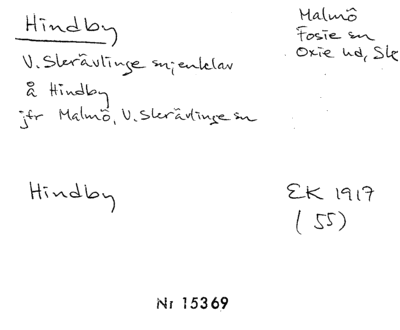 Hindby
Malmö
Fosie sn
Oxie hd, Sk
V. Skrävlinge sn, enklav
å Hindby
jfr Malmö, V. Skrävlinge sn
Hindby
EK 1917
(55)
Nr 15369